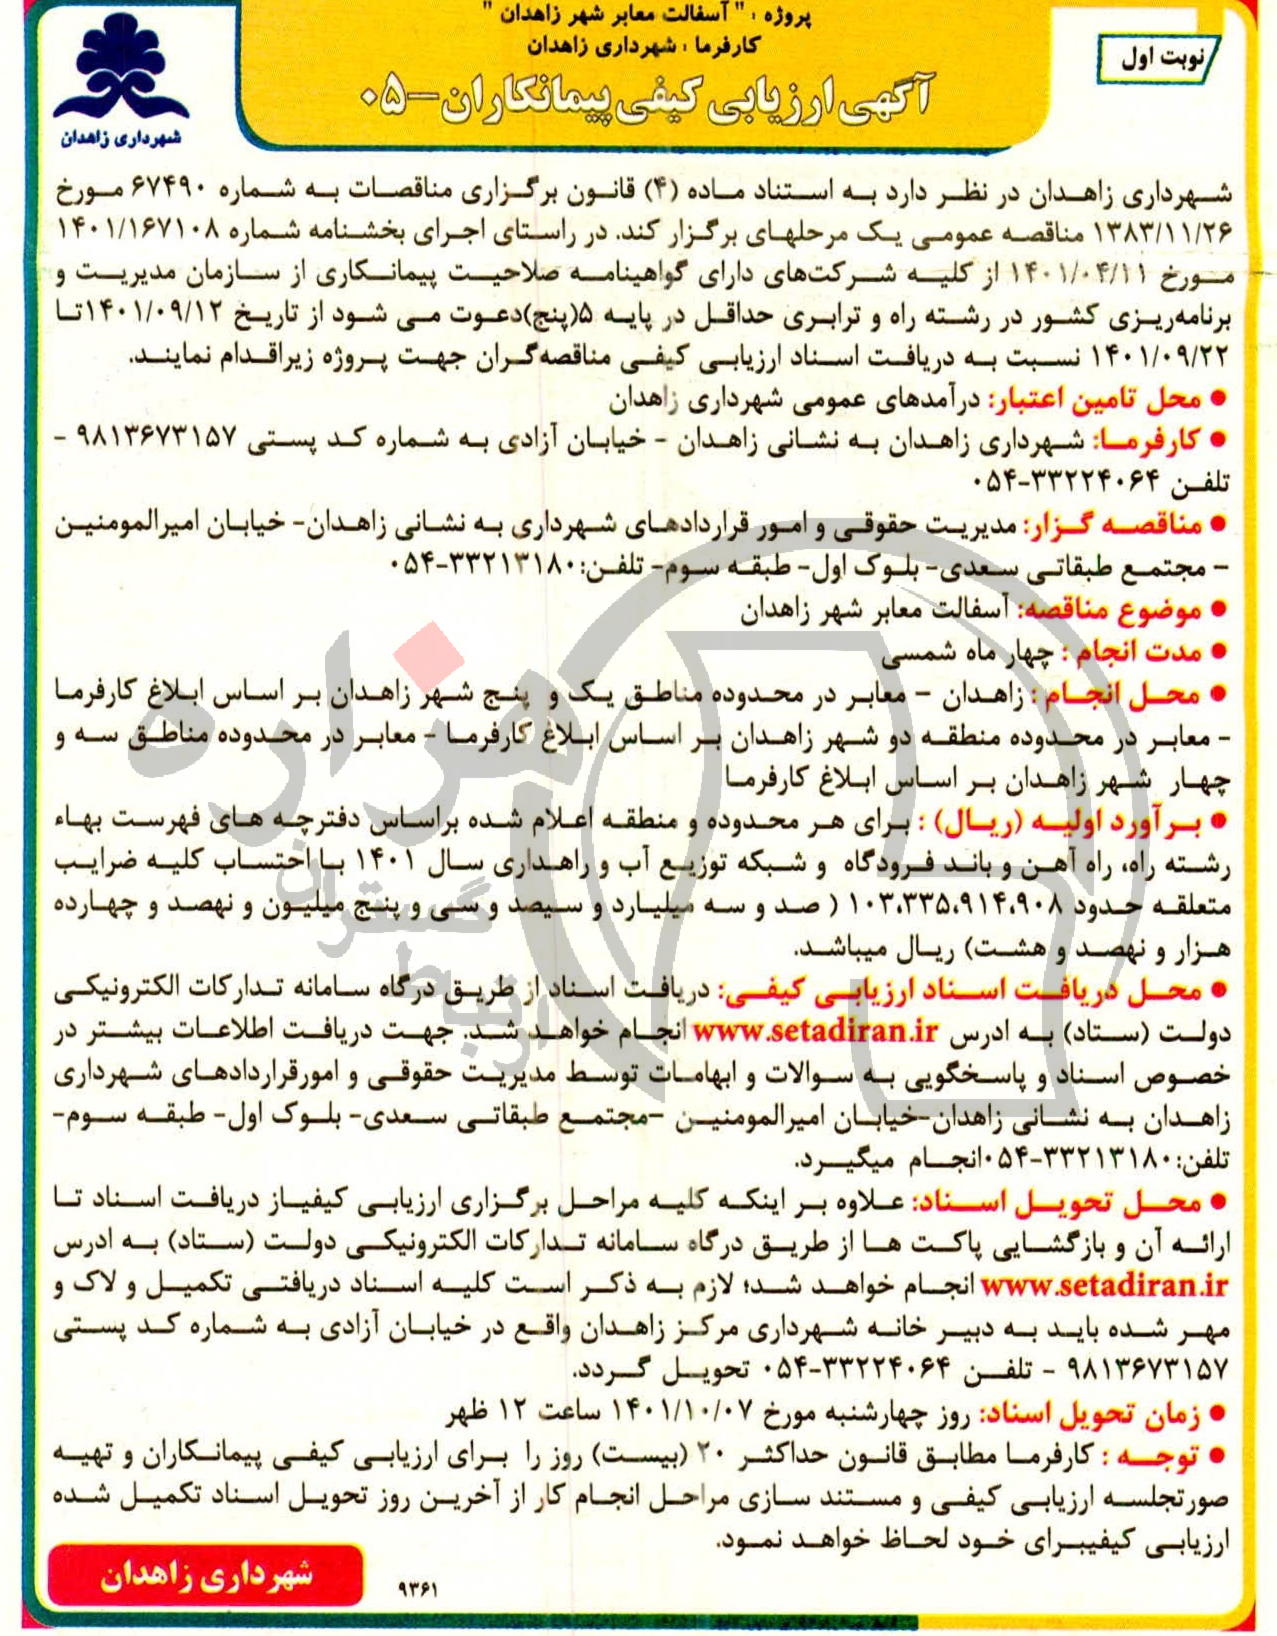 پروژه : " آسفالت معابر شهر زاهدان "
کارفرما : شهرداری زاهدان
نوبت اول
آگهی ارزیابی کیفی پیمانکاران-۰۵
شهرداری زاهدان
شهرداری زاهدان در نظر دارد به استناد ماده (۴) قانون برگزاری مناقصات به شماره ۶۷۴۹۰ مورخ
۱۳۸۳/۱۱/۲۶ مناقصه عمومی یک مرحلهای برگزار کند. در راستای اجرای بخشنامه شماره ۱۴۰۱/۱۶۷۱۰۸
مورخ ۱۴۰۱/۰۴/۱۱ از کلیه شرکت‌های دارای گواهینامه صلاحیت پیمانکاری از سازمان مدیریت و
برنامه‌ریزی کشور در رشته راه و ترابری حداقل در پایه ۵(پنج)دعوت می شود از تاریخ ۱۴۰۱/۰۹/۱۲تا
۱۴۰۱/۰۹/۲۲ نسبت به دریافت اسناد ارزیابی کیفی مناقصه‌گران جهت پروژه زیراقدام نمایند.
● محل تامین اعتبار: درآمدهای عمومی شهرداری زاهدان
● کارفرما: شهرداری زاهدان به نشانی زاهدان - خیابان آزادی به شماره کد پستی ۹۸۱۳۶۷۳۱۵۷ -
تلفن ۳۳۲۲۴۰۶۴-۰۵۴
● مناقصه گزار: مدیریت حقوقی و امور قراردادهای شهرداری به نشانی زاهدان- خیابان امیرالمومنین
- مجتمع طبقاتی سعدی- بلوک اول- طبقه سوم- تلفن:۳۳۲۱۳۱۸۰-۰۵۴
● موضوع مناقصه: آسفالت معابر شهر زاهدان
● مدت انجام : چهار ماه شمسی
● محل انجام : زاهدان - معابر در محدوده مناطق یک و پنج شهر زاهدان بر اساس ابلاغ کارفرما
- معابر در محدوده منطقه دو شهر زاهدان بر اساس ابلاغ کارفرما - معابر در محدوده مناطق سه و
چهار شهر زاهدان بر اساس ابلاغ کارفرما
● برآورد اولیه (ریال) : برای هر محدوده و منطقه اعلام شده براساس دفترچه های فهرست بهاء
رشته راه، راه آهن و باند فرودگاه و شبکه توزیع آب و راهداری سال ۱۴۰۱ با احتساب کلیه ضرایب
متعلقه حدود ۱۰۳،۳۳۵،۹۱۴،۹۰۸ ( صد و سه میلیارد و سیصد و سی و پنج میلیون و نهصد و چهارده
هزار و نهصد و هشت) ریال میباشد.
● محل دریافت اسناد ارزیابی کیفی: دریافت اسناد از طریق درگاه سامانه تدارکات الکترونیکی
دولت (ستاد) به ادرس www.setadiran.ir انجام خواهد شد. جهت دریافت اطلاعات بیشتر در
خصوص اسناد و پاسخگویی به سوالات و ابهامات توسط مدیریت حقوقی و امورقراردادهای شهرداری
زاهدان به نشانی زاهدان-خیابان امیرالمومنین -مجتمع طبقاتی سعدی- بلوک اول- طبقه سوم-
تلفن:۳۳۲۱۳۱۸۰-۰۵۴انجام میگیرد.
● محل تحویل اسناد: علاوه بر اینکه کلیه مراحل برگزاری ارزیابی کیفیاز دریافت اسناد تا
ارائه آن و بازگشایی پاکت ها از طریق درگاه سامانه تدارکات الکترونیکی دولت (ستاد) به ادرس
www.setadiran.ir انجام خواهد شد؛ لازم به ذکر است کلیه اسناد دریافتی تکمیل و لاک و
مهر شده باید به دبیر خانه شهرداری مرکز زاهدان واقع در خیابان آزادی به شماره کد پستی
۹۸۱۳۶۷۳۱۵۷ - تلفن ۳۳۲۲۴۰۶۴-۰۵۴ تحویل گردد.
● زمان تحویل اسناد: روز چهارشنبه مورخ ۱۴۰۱/۱۰/۰۷ ساعت ۱۲ ظهر
● توجه : کارفرما مطابق قانون حداکثر ۲۰ (بیست) روز را برای ارزیابی کیفی پیمانکاران و تهیه
صورتجلسه ارزیابی کیفی و مستند سازی مراحل انجام کار از آخرین روز تحویل اسناد تکمیل شده
ارزیابی کیفیبرای خود لحاظ خواهد نمود.
۹۳۶۱
شهرداری زاهدان
هزاره